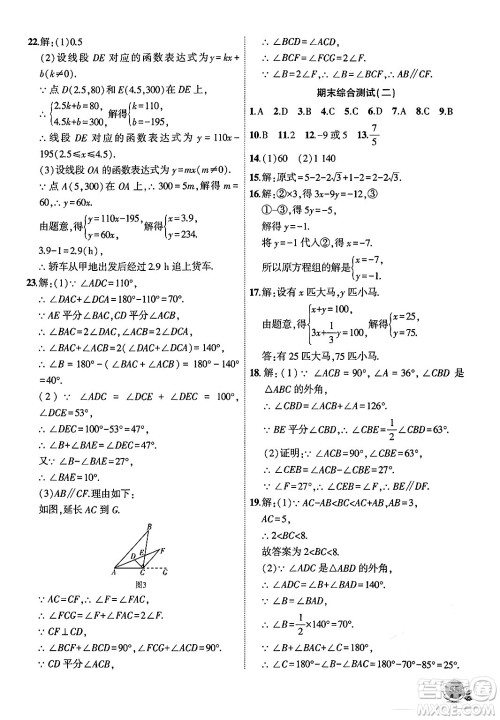 22.解：(1)0.5
(2)设线段 DE 对应的函数表达式为 y=kx+
b(k≠0).
∵ 点 D(2.5,80)和 E(4.5,300)在线段
DE 上,
∴ {2.5k+b=80, 4.5k+b=300, 解得{k=110, b=-195.
∴ 线段 DE 对应的函数表达式为 y=110x
-195(2.5≤x≤4.5).
(3)设线段 OA 的函数表达式为 y=mx(m≠0).
∵ 点 A(5,300)在 OA 上,∴ 300=5m,解得 m=
60,∴ y=60x.
由题意,得{y=110x-195, y=60x, 解得{x=3.9, y=234.
3.9-1=2.9(h),
∴ 轿车从甲地出发后经过 2.9 h 追上货车.
23.解：(1)∵ ∠DAC=110°,
∴ ∠DAC+∠DCA+∠D=180°,
∴ ∠DCA+∠D=70°.
∵ AE 平分∠BAC,CD 平分∠ACB,
∴ ∠BAC=2∠BAE,∠ACB=2∠DCA,
∴ ∠B=180°-(∠BAC+∠BCA)=180°-
140°=40°.
(2)∵ ∠ADC+∠DCE=100°,∠DCE=
53°,
∴ ∠DEC=100°-53°=47°,
∴ ∠B+∠BAE=∠DEC=47°.
又∵ ∠B-∠BAE=27°,
∴ ∠BAE=10°.
(3)AB∥CF.理由如下：
如图,延长 AC 到 G.
B
F
E
D
A
C
G
图3
∵ AC=CF,∴ ∠F=∠FAC,
∴ ∠FCG=∠F+∠FAC=2∠FAC.
∵ CF⊥CD,
∴ ∠BCF+∠BCD=90°,
∴ ∠FCG+∠ACD=90°.
∵ CD 平分∠ACB,
∴ ∠BCD=∠ACD,
∴ ∠BCF=∠FCG=2∠FAC.
期末综合测试(二)
1.A 2.D 3.B
10.B 11.2 12.-9 或 5 13.7/5
14.(1)60 (2)1 140
15.解：原式=5-2-2√3+1=4-2√3.
16.解：②×3,得 3x-9y=-12,③
①-③,得
把 y=-1 代入②,得 x=-7.
所以原方程组的解是{x=-7, y=-1.
17.解：设有 x 匹大马,y 匹小马.
由题意,得{x+y=100, 3x+1/3y=100, 解得{x=25, y=75.
答：有 25 匹大马,75 匹小马.
18.解：(1)∵ ∠ACB=90°,∠A=36°,∠CBD 是
△ABC 的外角,
∴ ∠CBD=∠A+∠ACB=126°.
∵ BE 平分∠CBD,∴ ∠CBE=1/2∠CBD=63°.
(2)证明：∵ ∠ACB=90°,∠CBE=63°,
∴ ∠CEB=∠ACB-∠CBE=27°.
∵ ∠F=27°,∴ ∠F=∠CEB,∴ DF∥BE.
19.解：(1)∵ AC-AB<BC<AC+AB,AB=3,
AC=5,
∴ 2<BC<8.
故答案为 2<BC<8.
(2)∵ ∠ADC 是△ABD 的外角,
∴ ∠ADC=∠B+∠BAD.
∵ ∠B=∠BAD,∴ ∠B=1/2∠ADC.